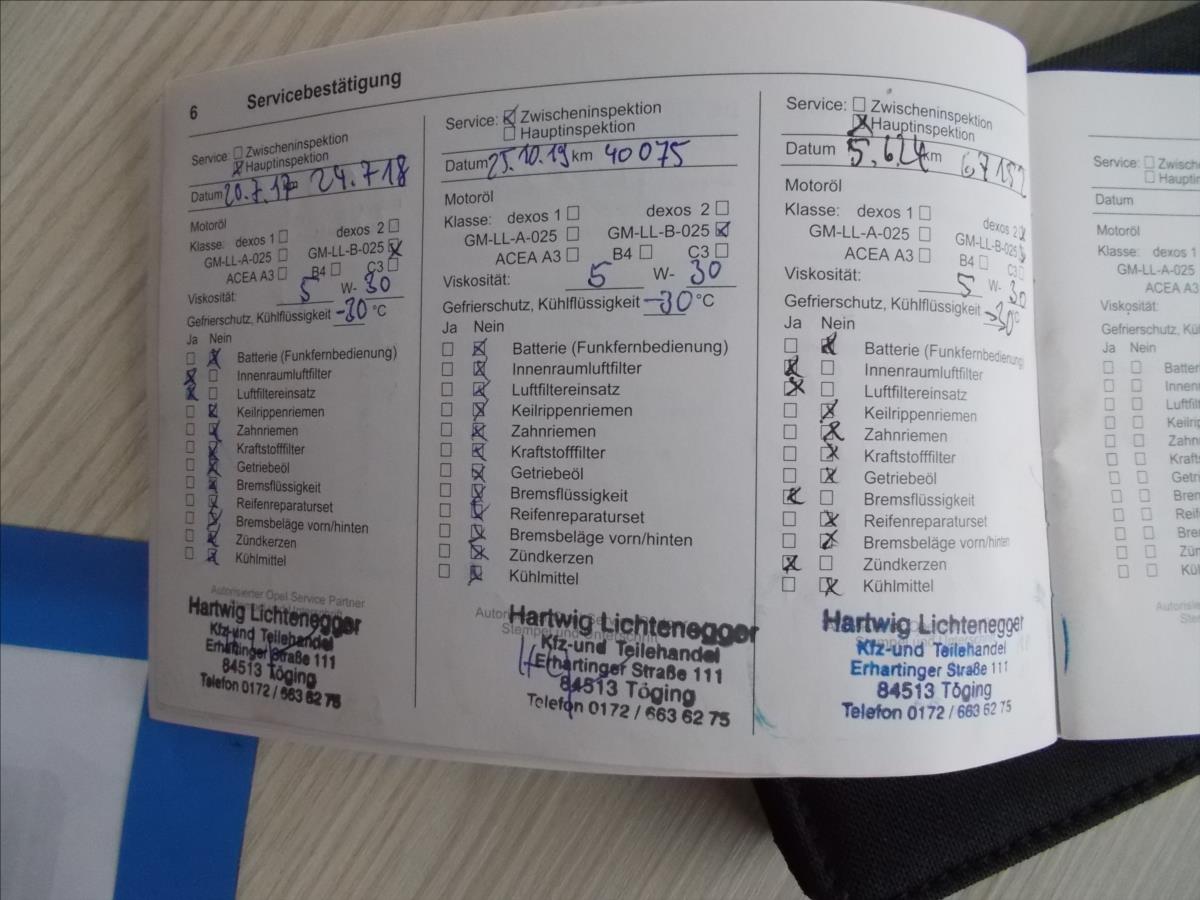 6 Servicebestätigung
Service: ☐ Zwischeninspektion
☒ Hauptinspektion
Datum 20.7.17 km 24.718
Motoröl
Klasse: dexos 1 ☐ dexos 2 ☐
GM-LL-A-025 ☐ GM-LL-B-025 ☒
ACEA A3 ☐ B4 ☐ C3 ☐
Viskosität: 5 W- 30
Gefrierschutz, Kühlflüssigkeit -30 °C
Ja Nein
☐ ☒ Batterie (Funkfernbedienung)
☒ ☐ Innenraumluftfilter
☒ ☐ Luftfiltereinsatz
☐ ☒ Keilrippenriemen
☐ ☒ Zahnriemen
☐ ☒ Kraftstofffilter
☐ ☒ Getriebeöl
☐ ☒ Bremsflüssigkeit
☐ ☒ Reifenreparaturset
☐ ☒ Bremsbeläge vorn/hinten
☐ ☒ Zündkerzen
☐ ☒ Kühlmittel
Autorisierter Opel Service Partner
Hartwig Lichtenegger
Kfz-und Teilehandel
Erhartinger Straße 111
84513 Töging
Telefon 0172 / 663 62 75
Service: ☒ Zwischeninspektion
☐ Hauptinspektion
Datum 25.10.19 km 40075
Motoröl
Klasse: dexos 1 ☐ dexos 2 ☐
GM-LL-A-025 ☐ GM-LL-B-025 ☒
ACEA A3 ☐ B4 ☐ C3 ☐
Viskosität: 5 W- 30
Gefrierschutz, Kühlflüssigkeit -30 °C
Ja Nein
☐ ☒ Batterie (Funkfernbedienung)
☐ ☒ Innenraumluftfilter
☐ ☒ Luftfiltereinsatz
☐ ☒ Keilrippenriemen
☐ ☒ Zahnriemen
☐ ☒ Kraftstofffilter
☐ ☒ Getriebeöl
☐ ☒ Bremsflüssigkeit
☐ ☒ Reifenreparaturset
☐ ☒ Bremsbeläge vorn/hinten
☐ ☒ Zündkerzen
☐ ☒ Kühlmittel
Hartwig Lichtenegger
Stempel und Unterschrift
Kfz-und Teilehandel
Erhartinger Straße 111
84513 Töging
Telefon 0172 / 663 62 75
Service: ☐ Zwischeninspektion
☒ Hauptinspektion
Datum 5.6.24 km 67152
Motoröl
Klasse: dexos 1 ☐ dexos 2 ☒
GM-LL-A-025 ☐ GM-LL-B-025 ☒
ACEA A3 ☐ B4 ☐ C3 ☐
Viskosität: 5 W- 30
Gefrierschutz, Kühlflüssigkeit -30 °C
Ja Nein
☐ ☒ Batterie (Funkfernbedienung)
☒ ☐ Innenraumluftfilter
☒ ☐ Luftfiltereinsatz
☐ ☒ Keilrippenriemen
☐ ☒ Zahnriemen
☐ ☒ Kraftstofffilter
☐ ☒ Getriebeöl
☒ ☐ Bremsflüssigkeit
☐ ☒ Reifenreparaturset
☐ ☒ Bremsbeläge vorn/hinten
☒ ☐ Zündkerzen
☐ ☒ Kühlmittel
Hartwig Lichtenegger
Stempel und Unterschrift
Kfz-und Teilehandel
Erhartinger Straße 111
84513 Töging
Telefon 0172 / 663 62 75
Service: ☐
☐
Datum
Motoröl
Klasse: dexos 1
GM-LL-A-025
ACEA A3
Viskosität:
Gefrierschutz,
Ja Nein